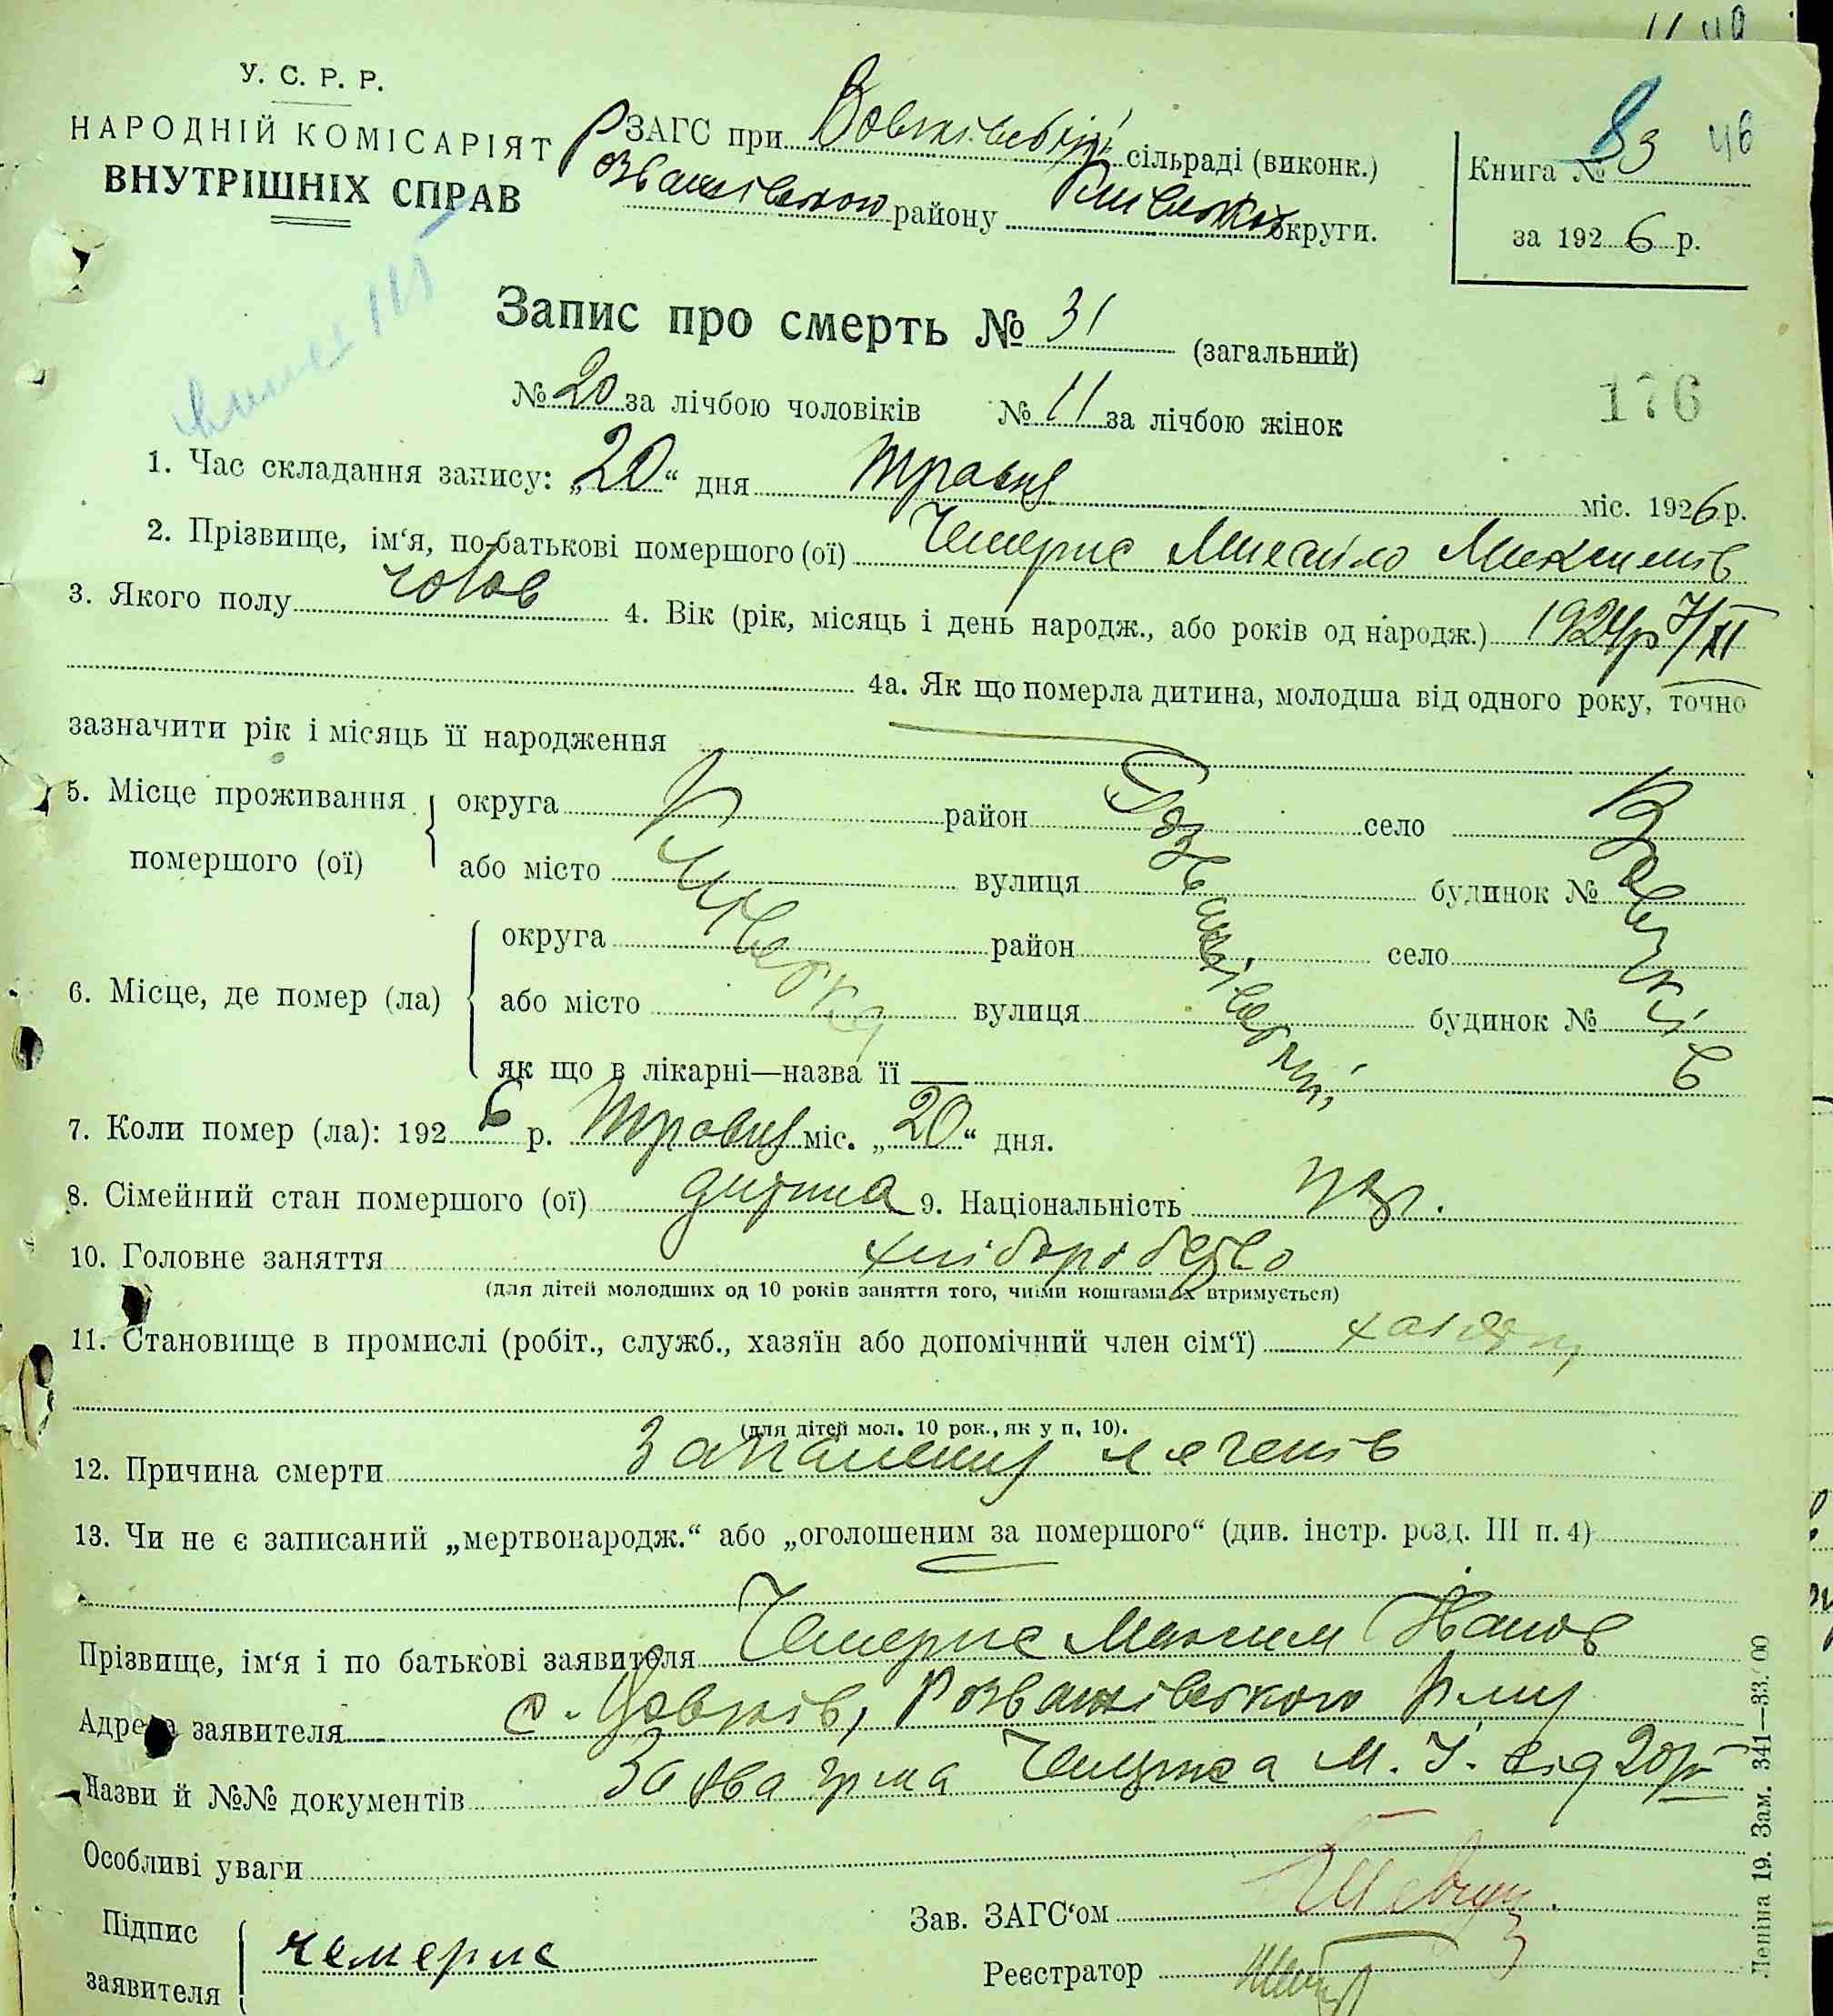 У. С. Р. Р.
НАРОДНІЙ КОМІСАРІЯТ
ВНУТРІШНІХ СПРАВ
ЗАГС при Вовчківській сільраді (виконк.)
Розважівського району Київської округи.
Книга № 83 46
за 1926 р.
Запис про смерть № 31 (загальний)
176
№ 20 за лічбою чоловіків № 11 за лічбою жінок
1. Час складання запису: „20“ дня травня міс. 1926 р.
2. Прізвище, ім‘я, по-батькові помершого (ої) Чемерис Михайло Максимів
3. Якого полу чолов 4. Вік (рік, місяць і день народж., або років од народж.) 1924р 7/XI
4а. Як що померла дитина, молодша від одного року, точно
зазначити рік і місяць її народження
5. Місце проживання помершого (ої) округа Київська район Розважівський село
або місто вулиця будинок №
6. Місце, де помер (ла) округа район село
або місто вулиця будинок №
як що в лікарні—назва її —
7. Коли помер (ла): 1926 р. Травня міс. „20“ дня.
8. Сімейний стан помершого (ої) дитина 9. Національність укр.
10. Головне заняття хліборобство
(для дітей молодших од 10 років заняття того, чиїми коштами їх втримується)
11. Становище в промислі (робіт., служб., хазяїн або допомічний член сім‘ї) хазяїн
(для дітей мол. 10 рок., як у п. 10).
12. Причина смерти Запалення легенів
13. Чи не є записаний „мертвонародж.“ або „оголошеним за помершого“ (див. інстр. розд. III п. 4)
Прізвище, ім‘я і по батькові заявителя Чемерис Максим Іванов
Адреса заявителя Розважівського р-ну
Назви й №№ документів Заява гр-на Чемериса М. І. від 20/V
Особливі уваги
Зав. ЗАГС‘ом
Підпис заявителя чемерис
Реєстратор
Леніна 19. Зам. 341—33.000